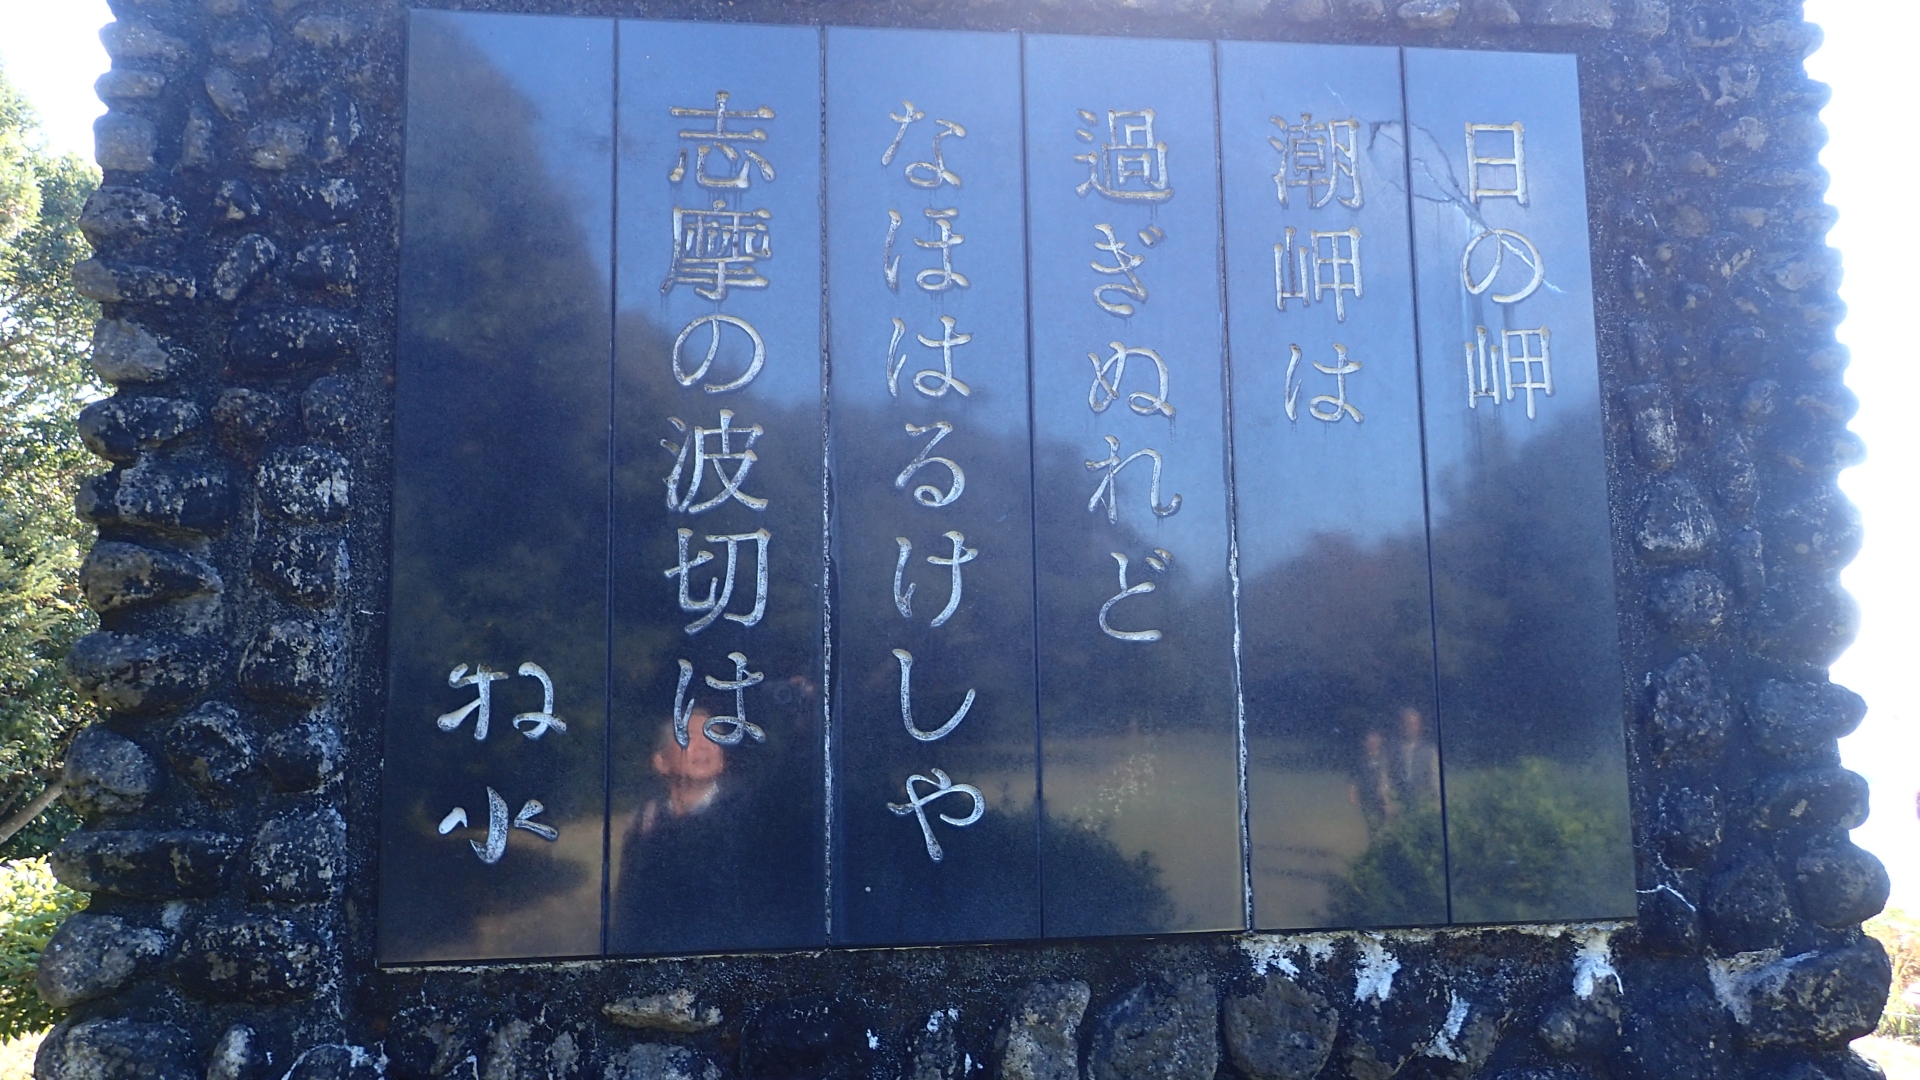 日の岬
潮岬は
過ぎぬれど
なほはるけしや
志摩の波切は
牧水